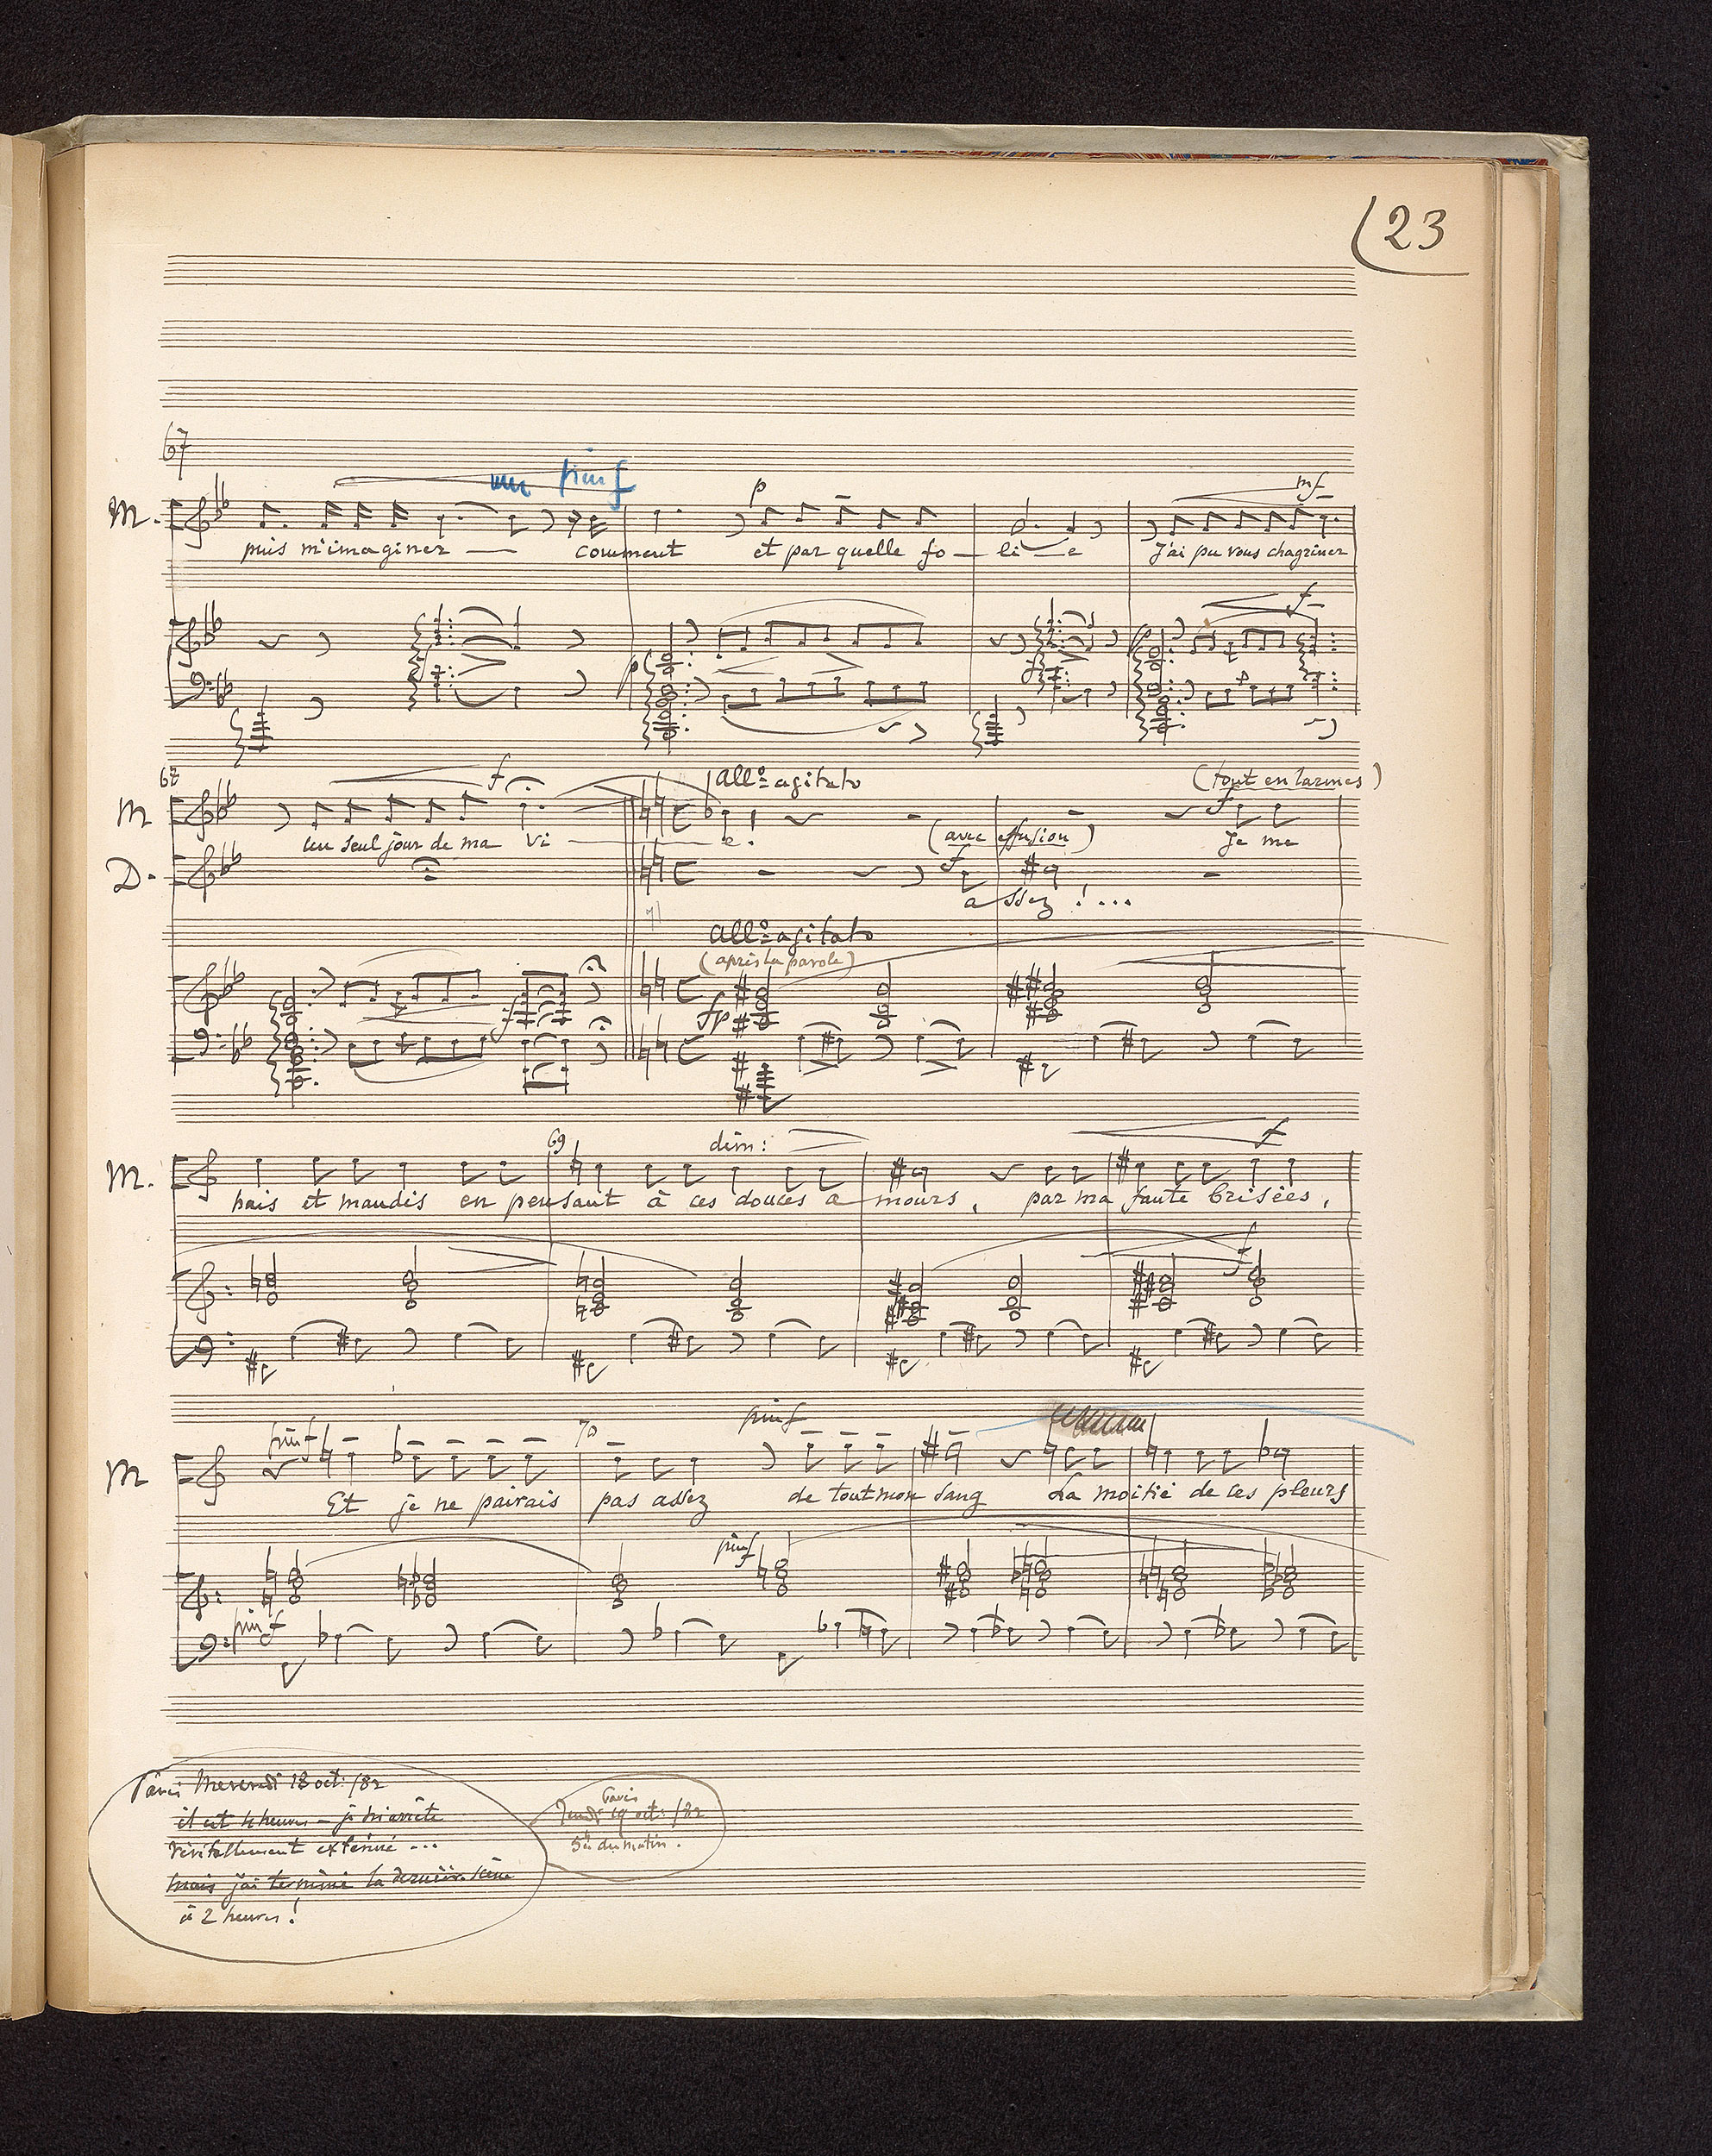 (23
67
un più f
p
mf
M.
puis m'imaginer — comment et par quelle fo — li — e J'ai pu vous chagriner
f
p
f
p
67
f
all.º agitato
(tout en larmes)
M
un seul jour de ma vi — e. Je me
f
(avec effusion)
f
D.
assez !...
all.º agitato
(après la parole)
f
fp
69
dim:
f
M.
hais et maudis en pensant à ces douces a mours, par ma faute brisées,
f
più f
70
più f
M
Et je ne pairais pas assez de tout mon sang La moitié de ces pleurs
più f
più f
Paris Mercredi 18 oct: /82
il est 4 heures — je m'arrête
véritablement exténué ...
mais j'ai terminé la dernière scène
à 2 heures!
Paris
Jeudi 19 oct: /82
5h du matin.